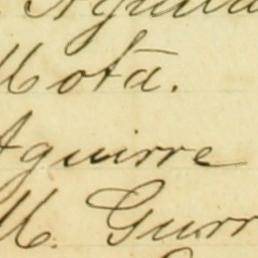 Mota.
Aguirre
M. Gurr